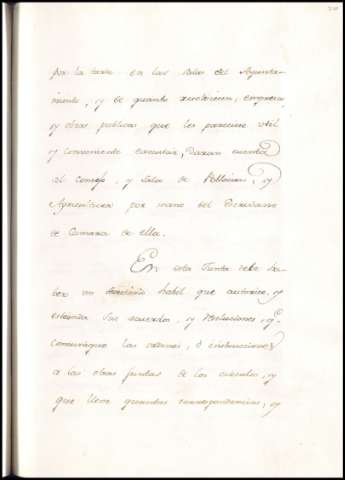 por la tarde en las Salas del Ayunta-
miento, y de quanto resolvieren, empresas,
y obras públicas que les pareciere util
y conveniente executar, daran cuenta
al Consejo, y Sala de y
Agricultura por mano del Escribano
de Camara de ella.
En esta Junta debe ha-
ber un Secretario habil que autorice, y
estienda sus acuerdos, y resoluciones, y
comunique las ordenes, ó instrucciones
a las otras Juntas de los , y
que lleve quantas correspondencias, y